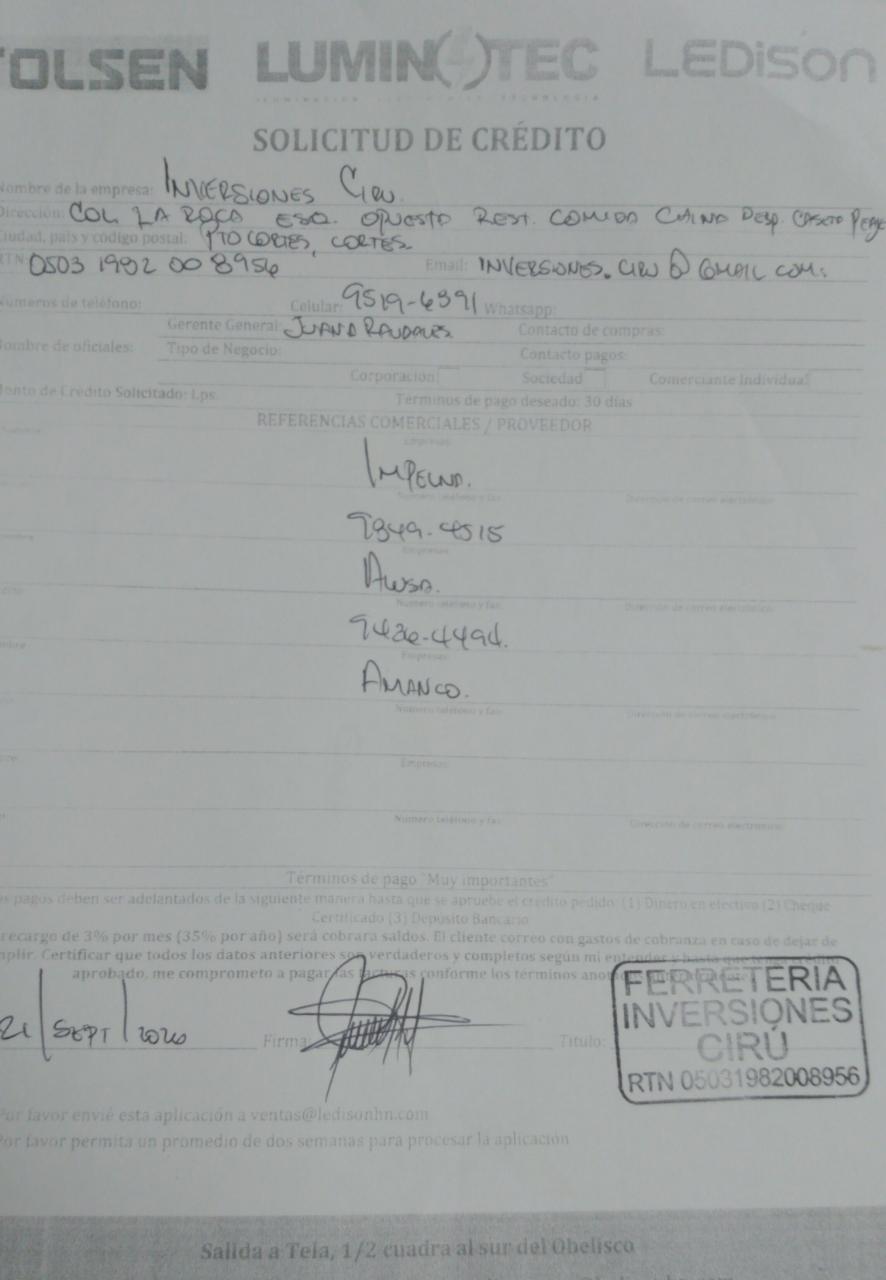 TOLSEN LUMIN4TEC LEDISON
SOLICITUD DE CRÉDITO
Nombre de la empresa: INVERSIONES CIRU.
Dirección: COL LA ROCA ESQ. OPUESTO REST. COMIDA CHINA DESP. CASETA PEAJE
Ciudad, país y código postal: PTO CORTES, CORTES.
RTN: 0503 1982 00 8956 Email: INVERSIONES.CIRU@GMAIL COM.
Números de teléfono: Celular: 9519-6391 Whatsapp:
Gerente General: JUAN D RAUDALES Contacto de compras:
Nombre de oficiales: Tipo de Negocio: Contacto pagos:
Corporación Sociedad Comerciante Individual
Monto de Crédito Solicitado: Lps. Términos de pago deseado: 30 días
REFERENCIAS COMERCIALES / PROVEEDOR
Empresa:
Número teléfono y fax Dirección de correo electrónico
9849-4515
Empresa:
Número teléfono y fax Dirección de correo electrónico
9426-4494.
Empresa:
AMANCO.
Número teléfono y fax Dirección de correo electrónico
Empresa:
Número teléfono y fax Dirección de correo electrónico
Términos de pago "Muy importantes"
pagos deben ser adelantados de la siguiente manera hasta que se apruebe el credito pedido: (1) Dinero en efectivo (2) Cheque
Certificado (3) Deposito Bancario
recargo de 3% por mes (35% por año) será cobrara saldos. El cliente correo con gastos de cobranza en caso de dejar de
Certificar que todos los datos anteriores son verdaderos y completos según mi entender y hasta que
aprobado, me comprometo a pagar las facturas conforme los términos
21/SEPT/2020 Firma: Titulo:
FERRETERIA
INVERSIONES
CIRÚ
RTN 05031982008956
Por favor envié esta aplicación a ventas@ledisonhn.com
Por favor permita un promedio de dos semanas para procesar la aplicación
Salida a Tela, 1/2 cuadra al sur del Obelisco